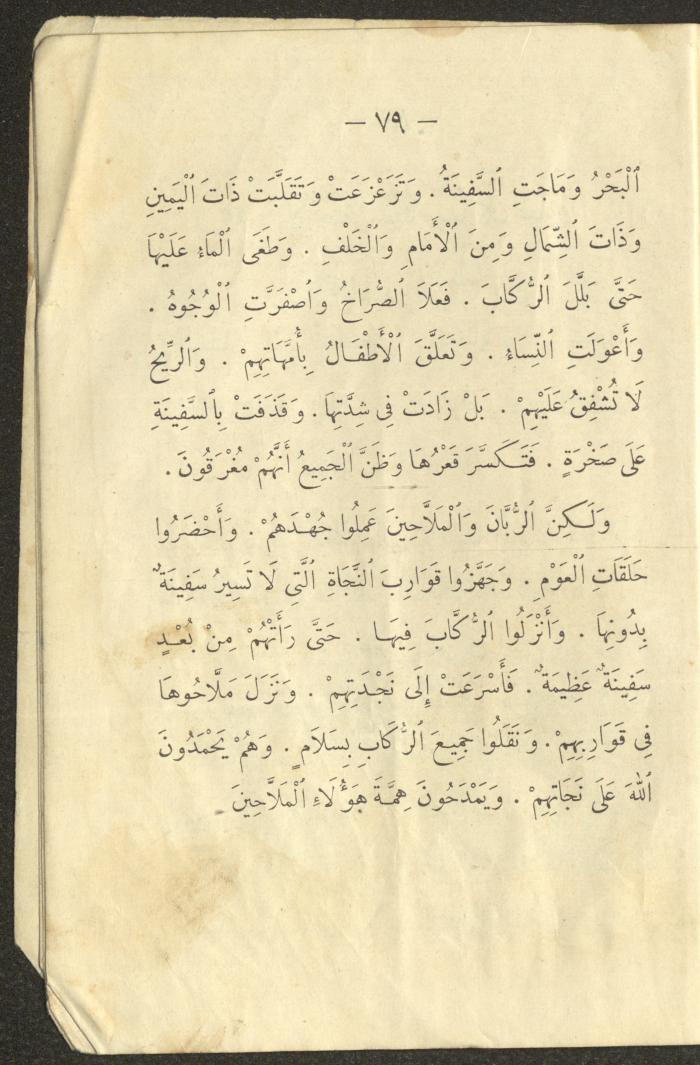 — ٧٩ —
ٱلْبَحْرُ وَمَاجَتِ ٱلسَّفِينَةُ . وَتَزَعْزَعَتْ وَتَقَلَّبَتْ ذَاتَ ٱلْيَمِينِ
وَذَاتَ ٱلشِّمَالِ وَمِنَ ٱلْأَمَامِ وَٱلْخَلْفِ . وَطَغَى ٱلْمَاءُ عَلَيْهَا
حَتَّى بَلَّلَ ٱلرُّكَّابَ . فَعَلَا ٱلصُّرَاخُ وَٱصْفَرَّتِ ٱلْوُجُوهُ .
وَأَعْوَلَتِ ٱلنِّسَاءُ . وَتَعَلَّقَ ٱلْأَطْفَالُ بِأُمَّهَاتِهِمْ . وَٱلرِّيحُ
لَا تُشْفِقُ عَلَيْهِمْ . بَلْ زَادَتْ فِى شِدَّتِهَا . وَقَذَفَتْ بِٱلسَّفِينَةِ
عَلَى صَخْرَةٍ . فَتَكَسَّرَ قَعْرُهَا وَظَنَّ ٱلْجَمِيعُ أَنَّهُمْ مُغْرَقُونَ .
وَلَكِنَّ ٱلرُّبَّانَ وَٱلْمَلَّاحِينَ عَمِلُوا جُهْدَهُمْ . وَأَحْضَرُوا
حَلَقَاتِ ٱلْعَوْمِ . وَجَهَّزُوا قَوَارِبَ ٱلنَّجَاةِ ٱلَّتِى لَا تَسِيرُ سَفِينَةٌ
بِدُونِهَا . وَأَنْزَلُوا ٱلرُّكَّابَ فِيهَا . حَتَّى رَأَتْهُمْ مِنْ بُعْدٍ
سَفِينَةٌ عَظِيمَةٌ . فَأَسْرَعَتْ إِلَى نَجْدَتِهِمْ . وَنَزَلَ مَلَّاحُوهَا
فِى قَوَارِبِهِمْ . وَنَقَلُوا جَمِيعَ ٱلرُّكَّابِ بِسَلَامٍ . وَهُمْ يَحْمَدُونَ
ٱللهَ عَلَى نَجَاتِهِمْ . وَيَمْدَحُونَ هِمَّةَ هَؤُلَاءِ ٱلْمَلَّاحِينَ